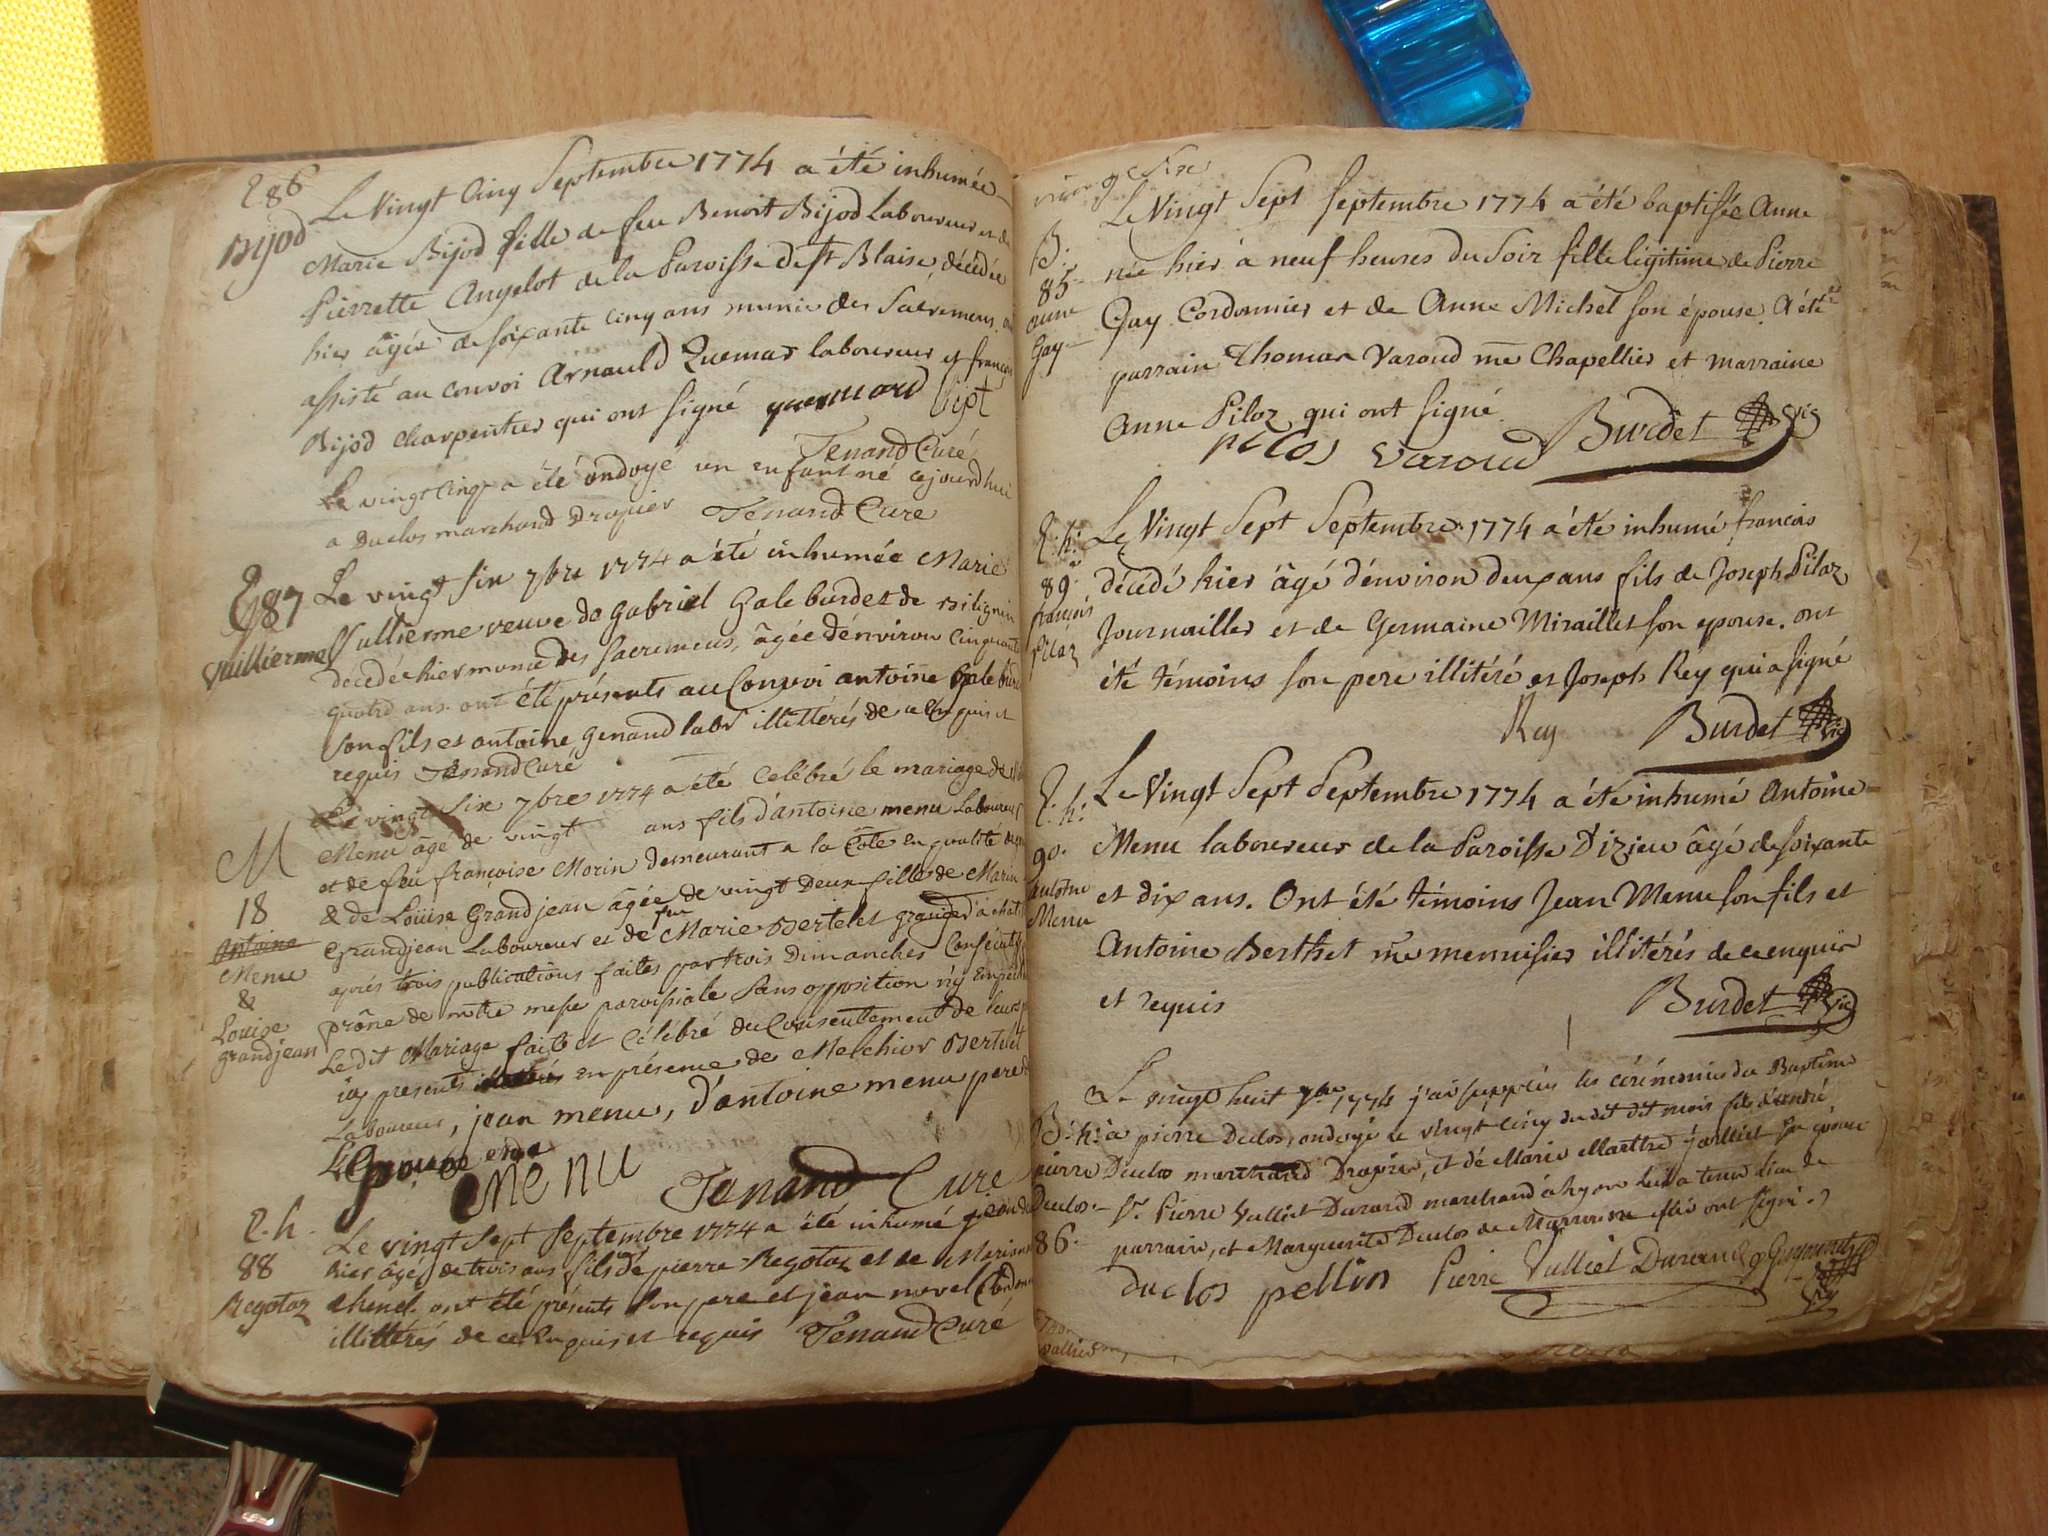 E 86
Bijod
Le Vingt Cinq Septembre 1774 a été inhumée
Marie Bijod fille de feu Benoit Bijod laboureur et de
Pierrette Angelot de la Paroisse de St Blaise, décédée
hier âgée de soixante cinq ans munie des Sacremens. ont
assisté au convoi Arnauld Quemar laboureur et françois
Bijod charpentier qui ont signé quemard
Tenand Curé
Le vingt cinq a été ondoyé un enfant né cejourd'hui
a Duclos marchand Drapier Tenand Cure
E 87
Vuillierme
Le vingt six 7bre 1774 a été inhumée Marie
Vullierme veuve de Gabriel Galeburdet de
décédée hier munie des sacremens, âgée d'environ cinquante
quatre ans. ont été présents au Convoi antoine
son fils et antoine Genand labr illitterés de ce Enquis et
requis Tenand Curé
M
18
Antoine
Menu
&
Louise
grandjean
Le vingt six 7bre 1774 a été Celébré le mariage de
Menu âgé de vingt ans fils d'antoine menu Laboureur
et de feu françoise Morin demeurant a la Côte en qualité
& de Louise Grandjean âgée de vingt Deux fille de
Grandjean Laboureur et de feu Marie Bertelet granger a
aprés trois publications faites par trois Dimanches Consécutifs
prône de notre messe paroissiale Sans opposition n'y
Ledit Mariage fait et Célébré du Consentement de leurs
icy presents en présence de Melchior Bertelet
Laboureur, jean menu, d'antoine menu pere
Menu
Tenand Curé
E. h.
88
Regotaz
Le vingt Sept Septembre 1774 a été inhumé
hier âgé de trois ans fils de pierre Regotaz et de
Chenel. ont été présents son pere et jean morel
illittérés de ce Enquis et requis Tenand Curé
B.
85
anne
Gay
Le Vingt Sept Septembre 1774 a été baptisée Anne
née hier à neuf heures du Soir fille légitime de Pierre
Gay Cordonnier et de Anne Michel son épouse. A été
parrain Thomas Varoud me Chapellier et marraine
Anne Piloz qui ont signé.
pilos Varoud Burdet Vic
E. h.
89
françois
Pilaz
Le Vingt Sept Septembre 1774 a été inhumé françois
décédé hier âgé d'environ deux ans fils de Joseph Pilaz
Journaillier et de Germaine Miraillet son epouse. ont
été témoins son pere illitéré et Joseph Rey qui a signé
Rey Burdet Vic
E. h.
90.
Antoine
Menu
Le Vingt Sept Septembre 1774 a été inhumé Antoine
Menu laboureur de la Paroisse D'izieu âgé de soixante
et dix ans. Ont été témoins Jean Menu son fils et
Antoine Berthet me menuisier illitérés de ce enquis
et requis
Burdet Vic
B. h.
pierre
Duclos
86.
Le vingt huit 7bre 1774 j'ai supplée les cérémonies du Baptême
à pierre Duclos, ondoyé le vingt cinq du dit mois fils d'andré
Duclos marchand Drapier, et de Marie Marthe jaillet son épouse
Sr. Pierre Vulliet Durand marchand à lyon lui a tenu lieu de
parrain, et Marguerite Duclos de Marraine ont signé.
duclos pellin Pierre Vulliet Durand